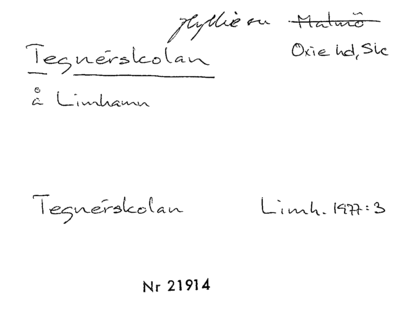 Hyllie sn Malmö
Tegnérskolan Oxie hd, Sk
å Limhamn
Tegnérskolan Limh. 1977:3
Nr 21914